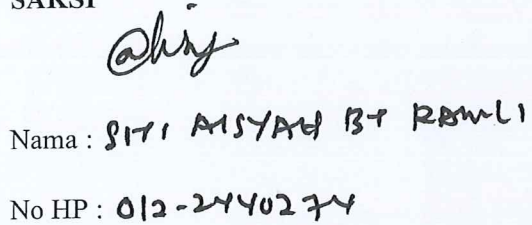 SAKSI
Nama : SITI AISYAH BT RAMLI
No HP : 012-2440274